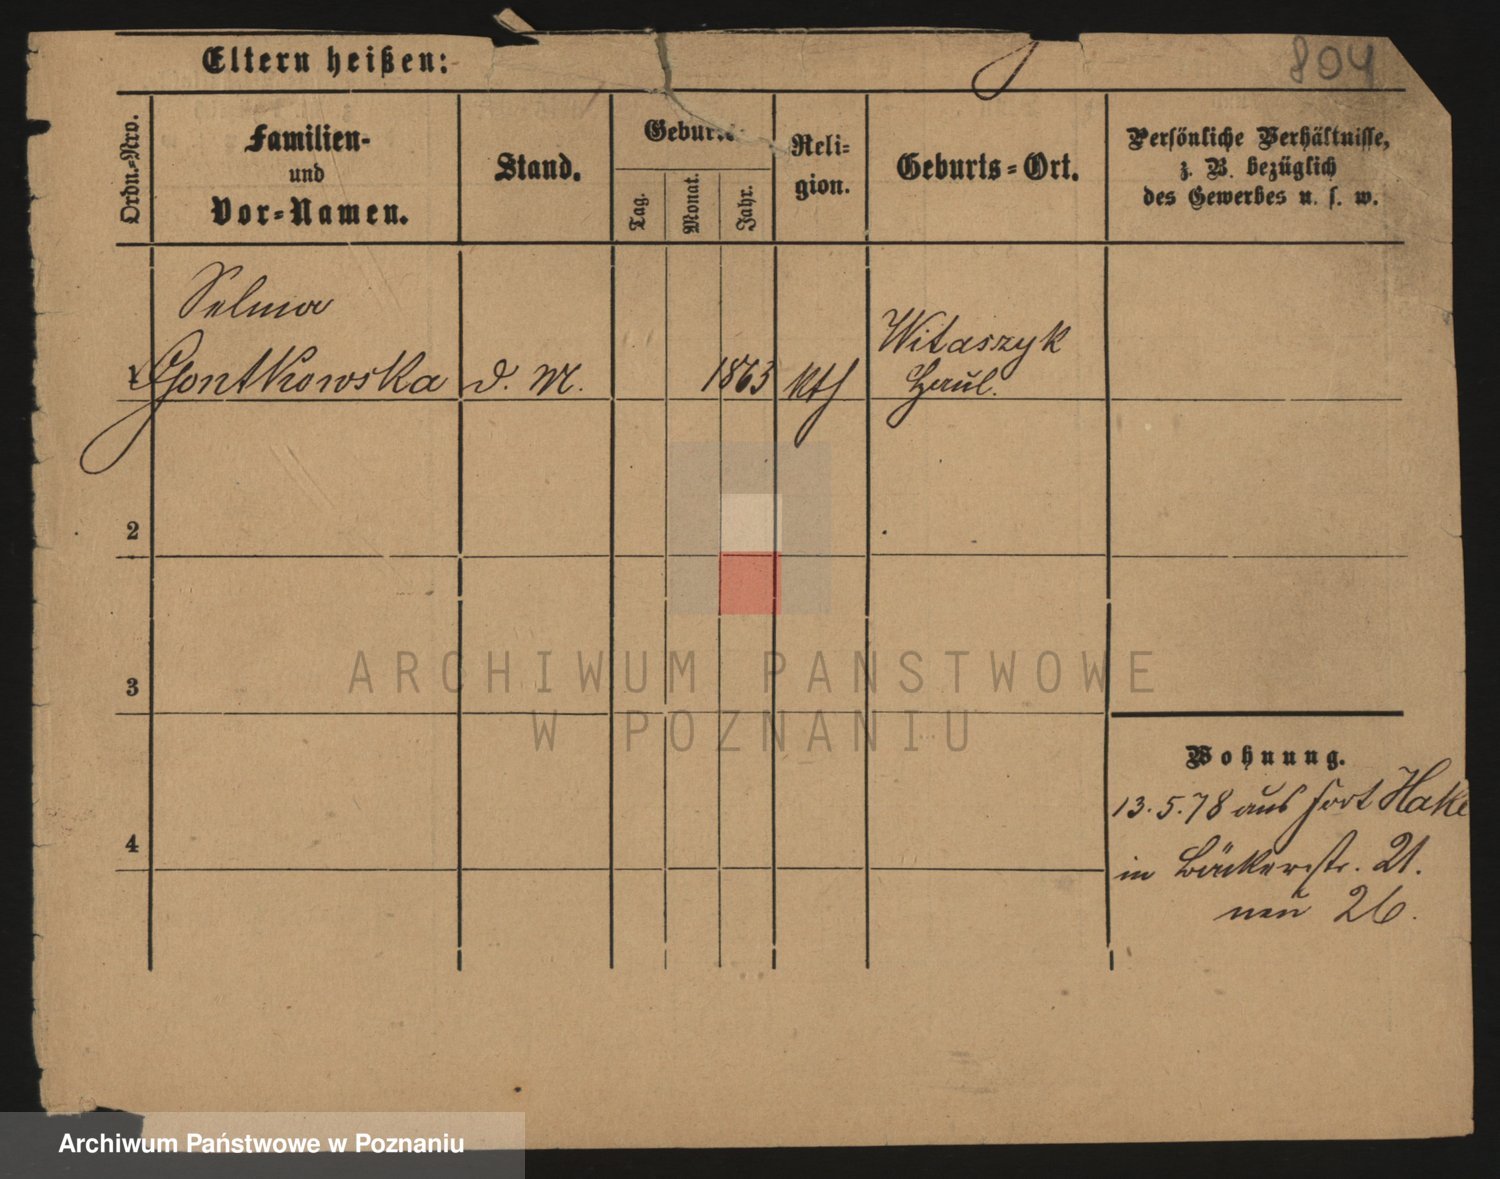 804
Eltern heißen:
Ordn.-Nro.
Familien-
und
Vor-Namen.
Stand.
Geburts-
Tag.
Monat.
Jahr.
Reli-
gion.
Geburts-Ort.
Persönliche Verhältnisse,
z. B. bezüglich
des Gewerbes u. s. w.
Selma
1 Gontkowska d. M. 1863 kth
Witaszyk
2
3
4
ARCHIWUM PAŃSTWOWE
W POZNANIU
Wohnung.
13.5.78 aus Fort Hake
in Bäckerstr. 21.
neu 26.
Archiwum Państwowe w Poznaniu